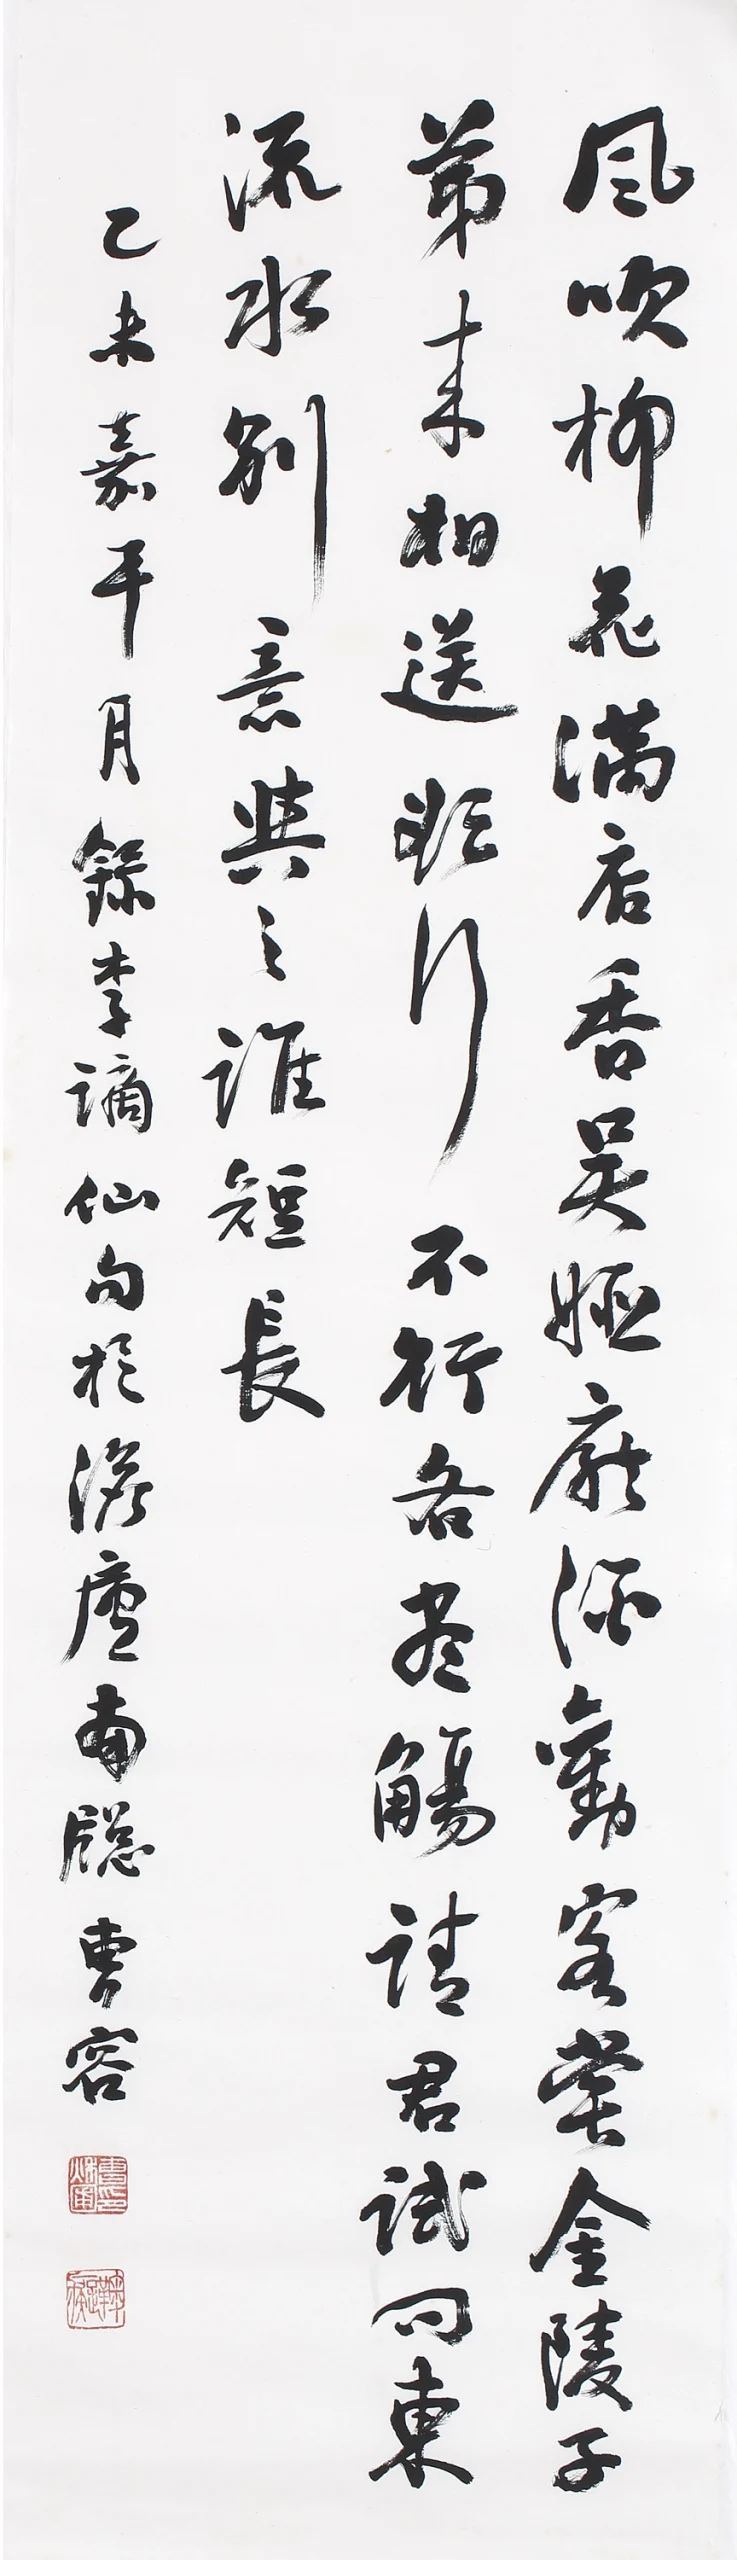 風吹柳花滿店香吳姬壓酒勸客嘗金陵子
弟来相送欲行不行各盡觴請君試問東
流水別意與之誰短長
乙未嘉平月錄李謫仙句於澹廬南牕曹容
曹印秋圃